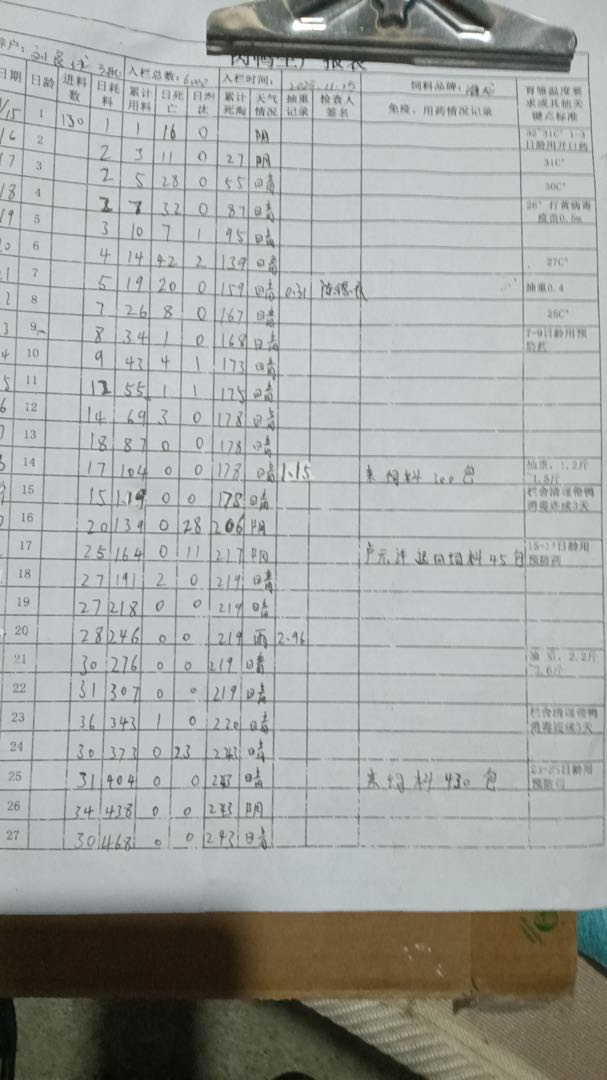 肉鸭生产报表
入栏总数：6002 入栏时间：2025.11.15 饲料品牌：
日期 日龄 进料数 日耗料 累计用料 日死亡 日淘汰 累计死淘 天气情况 抽重记录 检查人签名 免疫、用药情况记录 育雏温度要求或其他关键点标准
/15 1 130 1 1 16 0 阴 1-3日龄用开口药
16 2 2 3 11 0 27 阴 31C°
17 3 2 5 28 0 55 晴 30C°
18 4 8 32 0 87 晴 28° 打黄病毒疫苗0.8m
19 5 3 10 7 1 95 晴
20 6 4 14 42 2 139 晴 27C°
21 7 5 19 20 0 159 晴 0.31 抽重0.4
2 8 7 26 8 0 167 晴 26C°
3 9 8 34 1 0 168 晴 7-9日龄用预防药
4 10 9 43 4 1 173 晴
5 11 12 55 1 1 175 晴
6 12 14 69 3 0 178 晴
7 13 18 87 0 0 178 晴
14 17 104 0 0 178 晴 1.15 来饲料300包
15 15 119 0 0 178 晴 栏舍清理带鸭消毒连续3天
16 20 139 0 28 206 阴
17 25 164 0 11 217 阴 退回饲料45包 15-17日龄用预防药
18 27 191 2 0 219 晴
19 27 218 0 0 219 晴
20 28 246 0 0 219 雨 2.96
21 30 276 0 0 219 晴
22 31 307 0 0 219 晴
23 36 343 1 0 220 晴 栏舍清理带鸭消毒连续3天
24 30 373 0 23 243 晴
25 31 404 0 0 243 晴 来饲料430包 23-25日龄用预防药
26 34 438 0 0 243 阴
27 30 468 0 0 243 晴